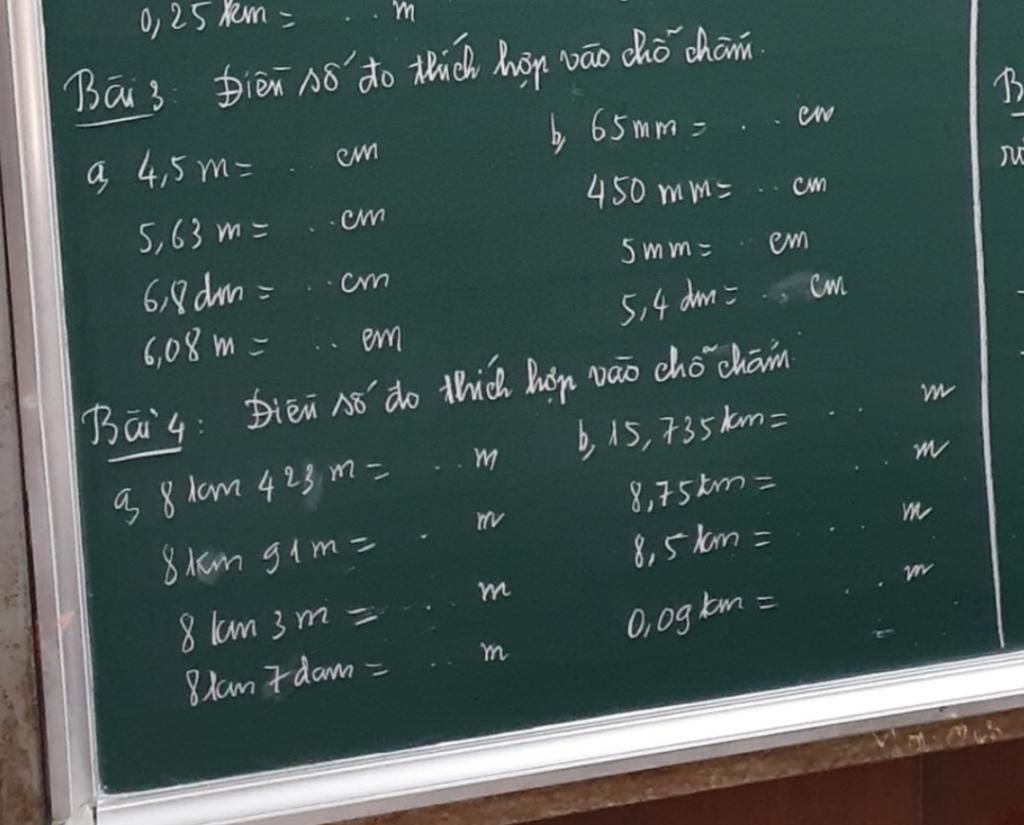 0,25 km = .. m
Bài 3: Điền số đo thích hợp vào chỗ chấm.
a, 4,5 m = . cm
5,63 m = .. cm
6,8 dm = .. cm
6,08 m = .. cm
b, 65 mm = . .. cm
450 mm = .. cm
5 mm = .. cm
5,4 dm = .. cm
Bài 4: Điền số đo thích hợp vào chỗ chấm
a, 8 km 423 m = .. m
8 km 91 m = . m
8 km 3 m = .. m
8 km 7 dam = .. m
b, 15,735 km = .. m
8,75 km = .. m
8,5 km = .. m
0,09 km = .. m
B